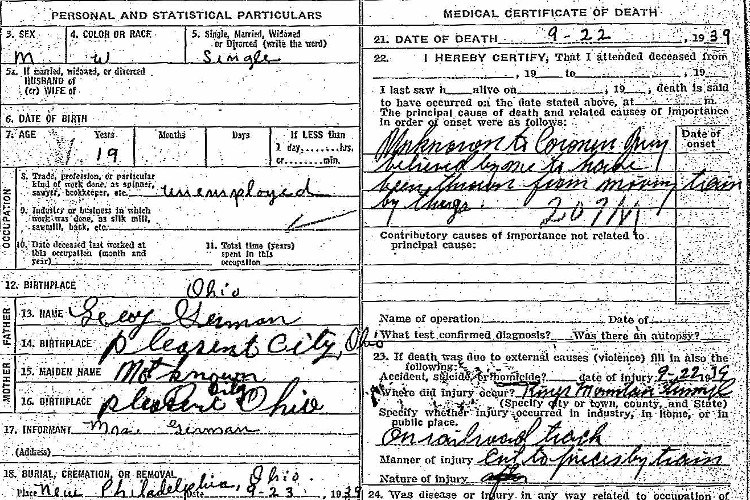 PERSONAL AND STATISTICAL PARTICULARS
3. SEX
M
4. COLOR OR RACE
W
5. Single, Married, Widowed
or Divorced (write the word)
Single
5a. If married, widowed, or divorced
HUSBAND of
(or) WIFE of
6. DATE OF BIRTH
7. AGE Years Months Days If LESS than
19
1 day,......hrs.
or......min.
OCCUPATION
8. Trade, profession, or particular
kind of work done, as spinner,
sawyer, bookkeeper, etc.
unemployed
9. Industry or business in which
work was done, as silk mill,
sawmill, bank, etc.
10. Date deceased last worked at
this occupation (month and
year)
11. Total time (years)
spent in this
occupation
12. BIRTHPLACE Ohio
FATHER
13. NAME German
14. BIRTHPLACE pleasent City, Ohio
MOTHER
15. MAIDEN NAME Not known
16. BIRTHPLACE pleasent City Ohio
17. INFORMANT Mrs. German
(Address)
18. BURIAL, CREMATION, OR REMOVAL
Place New Philadelphia, Ohio. Date 9-23, 1939
MEDICAL CERTIFICATE OF DEATH
21. DATE OF DEATH 9-22, 1939
22. I HEREBY CERTIFY, That I attended deceased from
, 19 to , 19
I last saw h alive on , 19 , death is said
to have occurred on the date stated above, at m.
The principal cause of death and related causes of importance
in order of onset were as follows:
Date of
onset
Unknown to Coroner Jury
believed by me to have
been thrown from moving train
by thugs. 207M
Contributory causes of importance not related to
principal cause:
Name of operation Date of
What test confirmed diagnosis? Was there an autopsy?
23. If death was due to external causes (violence) fill in also the
following:
Accident, suicide, or homicide? date of injury 9-22 1939
Where did injury occur? Kings Mountain Tunnel
(Specify city or town, county, and State)
Specify whether injury occurred in industry, in home, or in
public place.
On railroad track
Manner of injury Cut to pieces by train
Nature of injury
24. Was disease or injury in any way related to occupation of